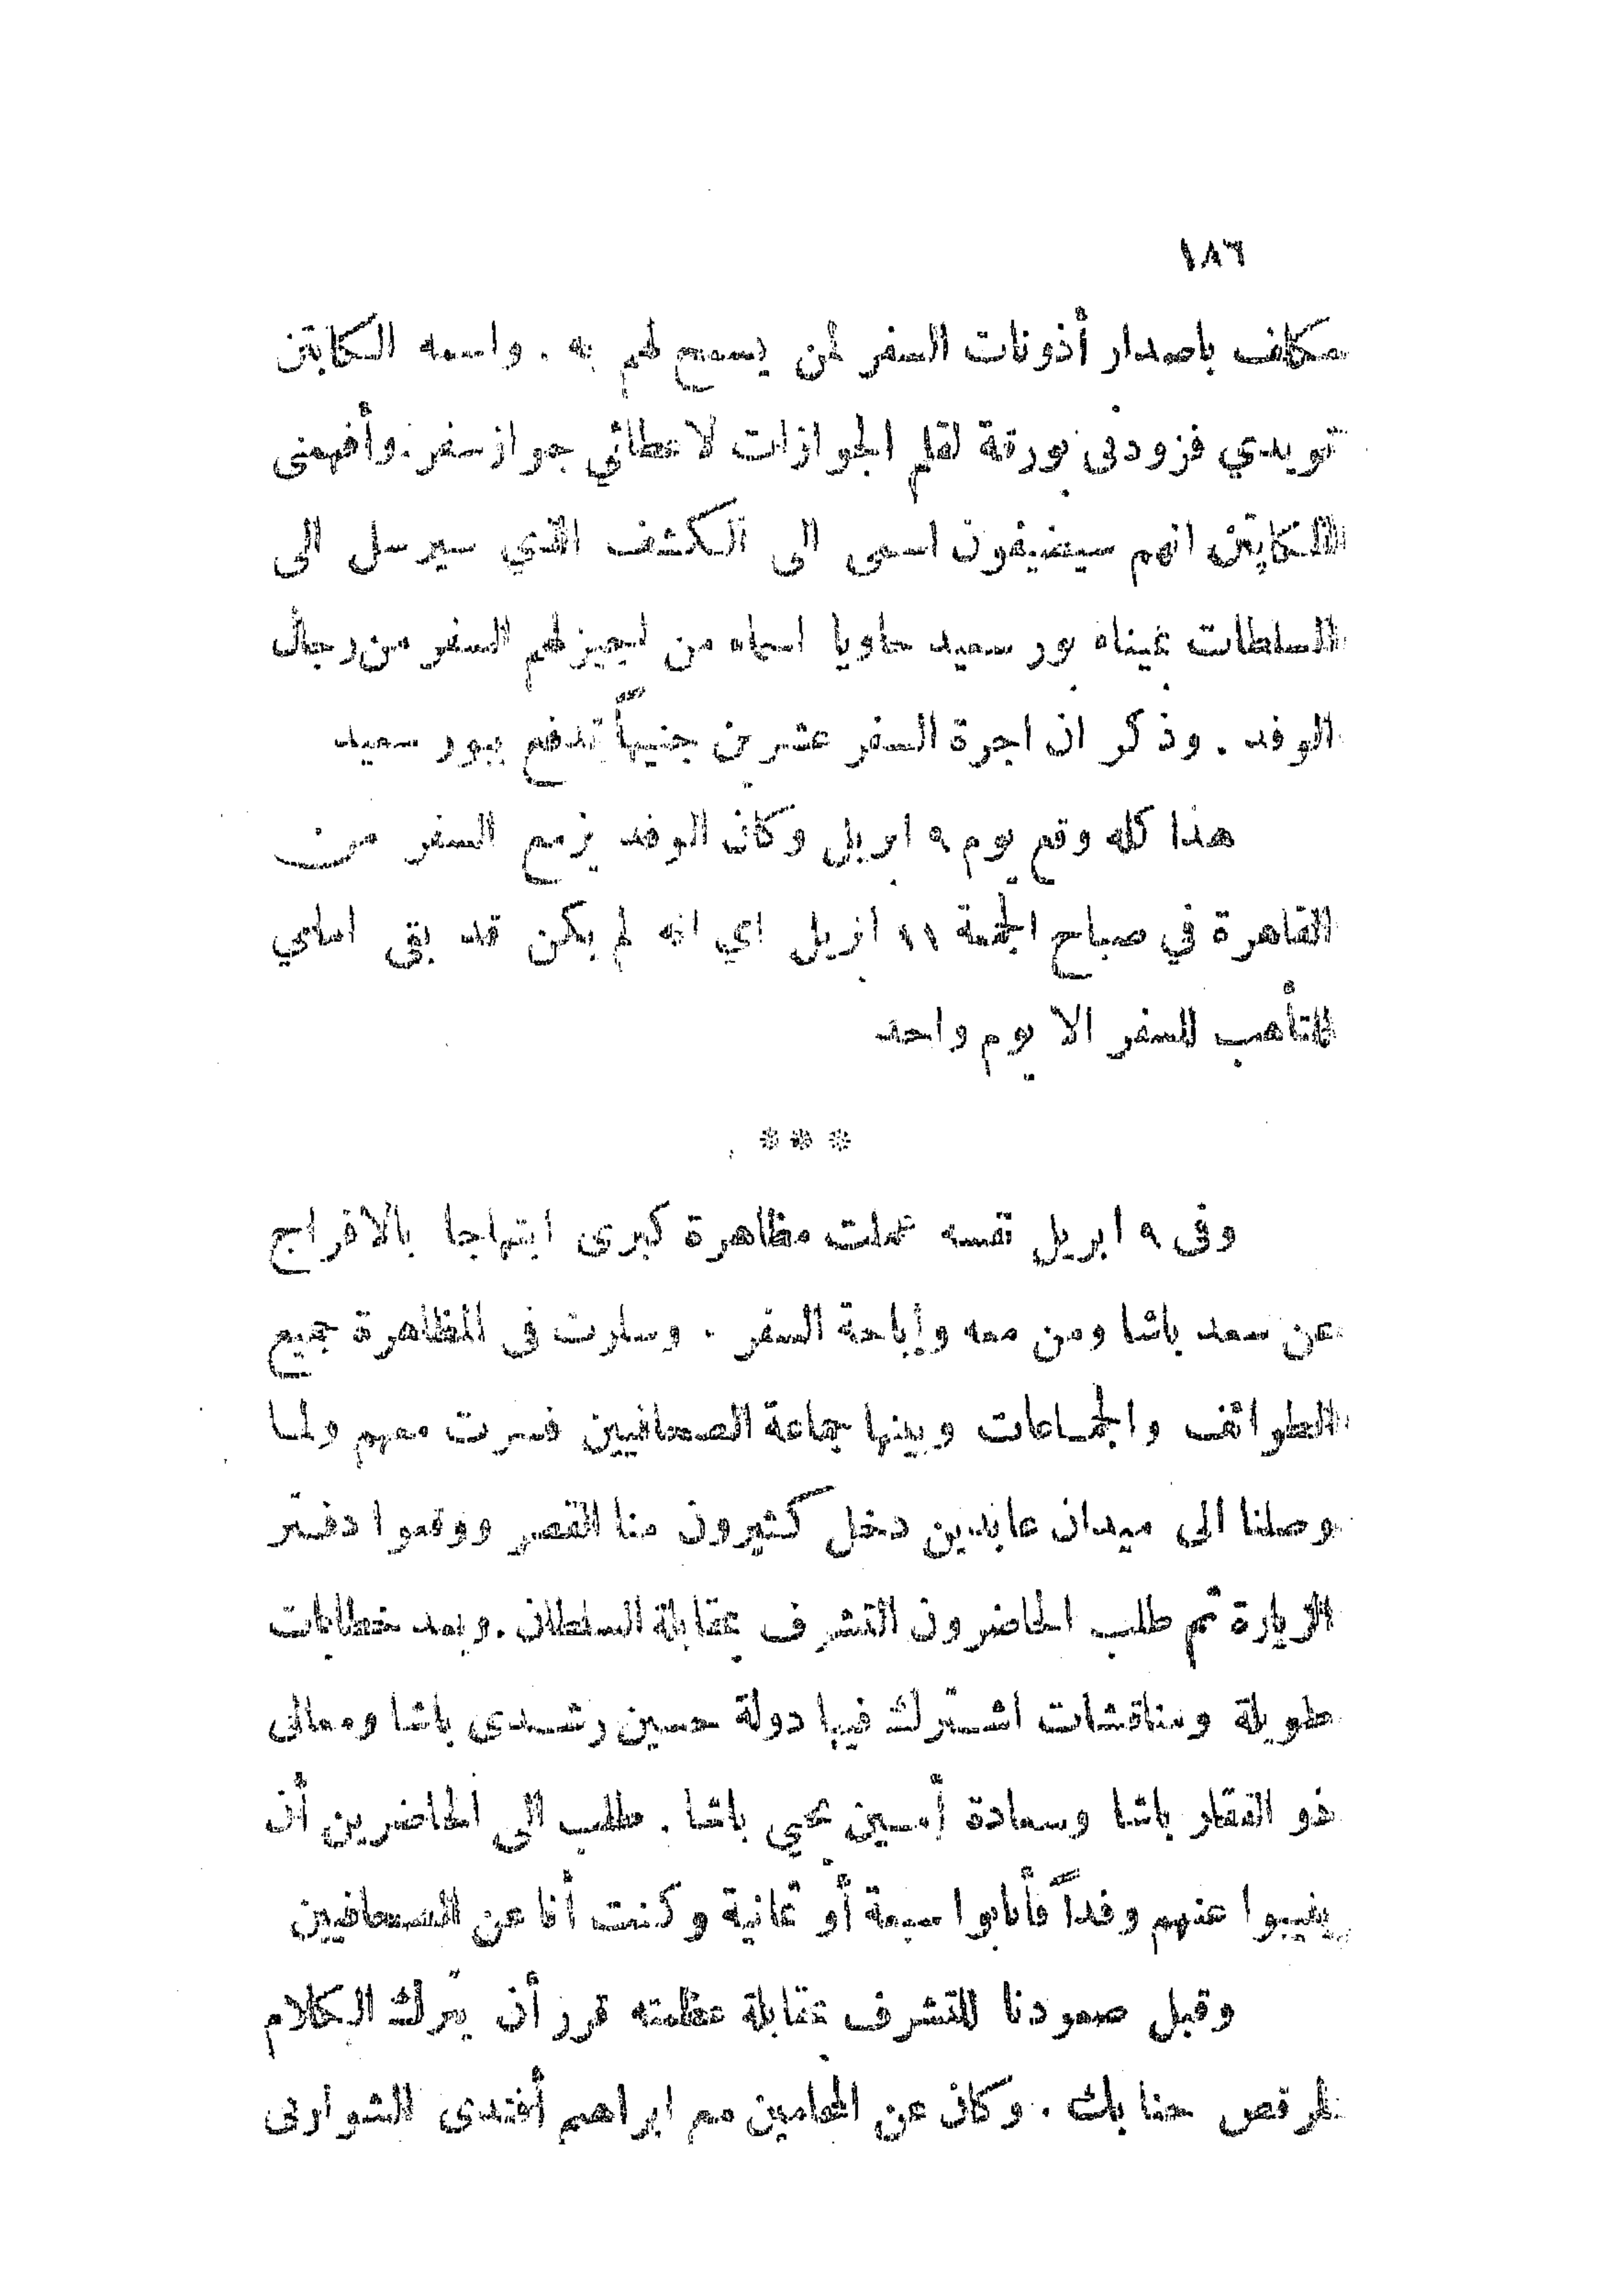 ١٨٦
مكلف باصدار أذونات السفر لمن يسمح لهم به . واسمه الكابتن
تويدي فزودنى بورقة لقلم الجوازات لاعطائي جواز سفر . وأفهمنى
الكابتن انهم سيضيفون اسمى الى الكشف الذي سيرسل الى
السلطات بميناء بور سعيد حاويا اسماء من اجيز لهم السفر من رجال
الوفد . وذكر ان اجرة السفر عشرين جنيهاً تدفع ببور سعيد
هذا كله وقع يوم ٩ ابريل وكان الوفد يزمع السفر من
القاهرة في صباح الجمعة ١١ ابريل اي انه لم يكن قد بقى امامي
للتأهب للسفر الا يوم واحد
***
وفى ٩ ابريل نفسه عملت مظاهرة كبرى ابتهاجا بالافراج
عن سعد باشا ومن معه وإباحة السفر . وسارت فى المظاهرة جميع
الطوائف والجماعات وبينها جماعة الصحافيين فسرت معهم ولما
وصلنا الى ميدان عابدين دخل كثيرون منا القصر ووقعوا دفتر
الزيارة ثم طلب الحاضرون التشرف بمقابلة السلطان . وبعد خطابات
طويلة ومناقشات اشترك فيها دولة حسين رشدى باشا ومعالى
ذو الفقار باشا وسعادة أمين يحيي باشا . طلب الى الحاضرين أن
ينيبوا عنهم وفداً فأنابوا سبعة أو ثمانية وكنت أنا عن الصحافيين
وقبل صعودنا للتشرف بمقابلة عظمته قرر أن يترك الكلام
لمرقص حنا بك . وكان عن المحامين مع ابراهيم أفندى الشواربى